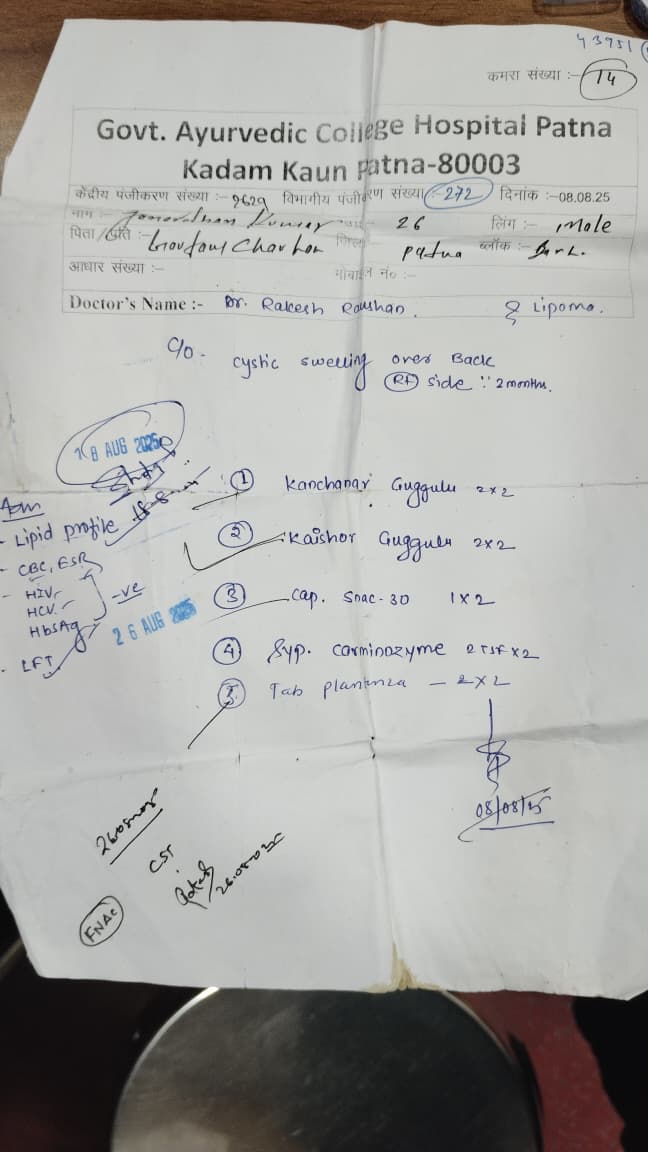 43951
कमरा संख्या :- 14
Govt. Ayurvedic College Hospital Patna
Kadam Kaun Patna-80003
केंद्रीय पंजीकरण संख्या :- 9629 विभागीय पंजीकरण संख्या :- 272 दिनांक :-08.08.25
नाम :- Kumar 26 लिंग :- Male
पिता/पति :- Charhan Patna ब्लॉक :-
आधार संख्या :- मोबाईल नं० :-
Doctor's Name :- Dr. Rakesh Raushan. Lipoma.
C/O - cystic swelling over Back
(Rt) side 2 months.
18 AUG 2025
Adv
- Lipid profile
- CBC, ESR
- HIV
HCV
HbsAg
-ve
26 AUG 2025
- LFT
① Kanchanar Guggulu 2x2
② Kaishor Guggulu 2x2
③ Cap. Snac-30 1x2
④ Syp. Carminozyme 2 TSF x 2
⑤ Tab - 2x2
08/08/25
CST
FNAC